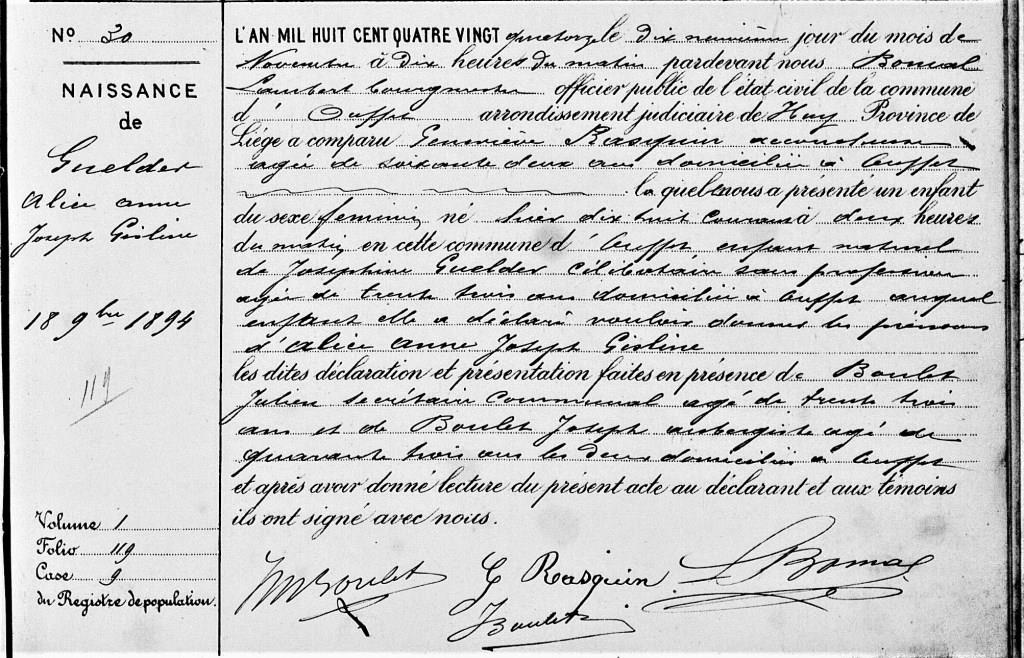 Nº 30
NAISSANCE
de
Guelder
Alice Anne
Joseph Gisline
18 9bre 1894
119
Volume 1
Folio 119
Case 9
du Registre de population.
L'AN MIL HUIT CENT QUATRE VINGT quatorze le dix neuvième jour du mois de
Novembre à dix heures du matin pardevant nous Bomal
Lambert bourgmestre officier public de l'état civil de la commune
d' Ouffet arrondissement judiciaire de Huy Province de
Liège a comparu Geneviève Rasquin accoucheuse
agée de soixante deux ans domiciliée à Ouffet
la quelle nous a présenté un enfant
du sexe féminin né hier dix huit courant à deux heures
du matin en cette commune d' Ouffet enfant naturel
de Joséphine Guelder célibataire sans profession
agée de trente trois ans domiciliée à Ouffet auquel
enfant elle a déclaré vouloir donner les prénoms
d'Alice Anne Joseph Gisline
les dites déclaration et présentation faites en présence de Boulet
Julien secrétaire communal agé de trente trois
ans et de Boulet Joseph aubergiste agé de
quarante trois ans les deux domiciliés à Ouffet
et après avoir donné lecture du présent acte au déclarant et aux témoins
ils ont signé avec nous.
Boulet G Rasquin L Bomal
J Boulet